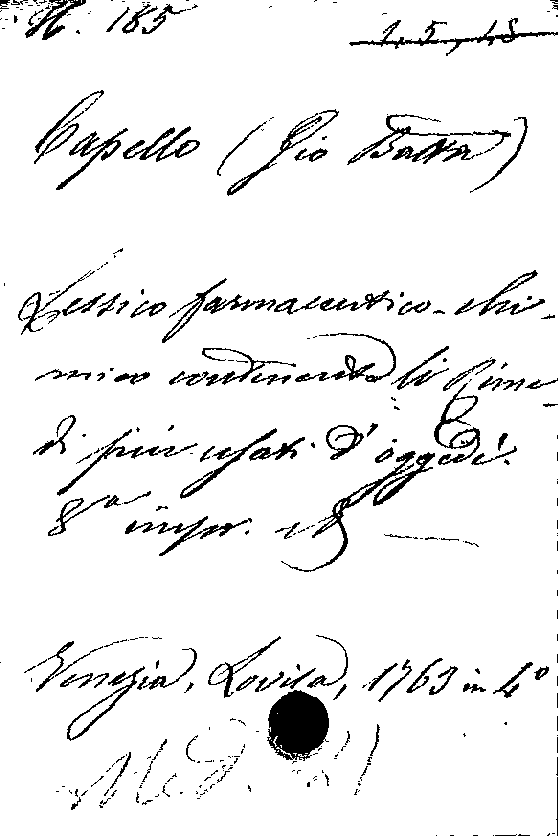 H. 185
1, 5, 18
Capello (Gio Batta)
Lessico farmaceutico-chi-
mico contenente li Rime-
di più usati d'oggedì.
8ª impr.
Venezia, Lovisa, 1763 in 4º
Med.